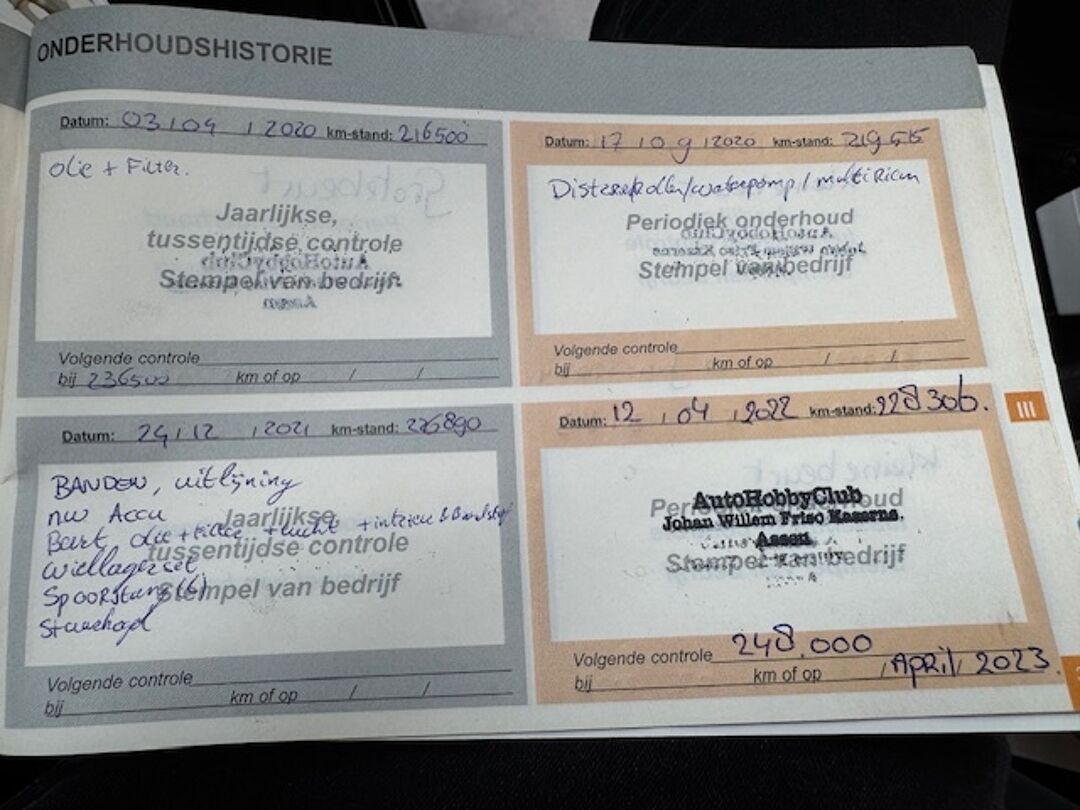 ONDERHOUDSHISTORIE
Datum: 03 / 04 / 2020 km-stand: 216500
Olie + Filter.
Jaarlijkse,
tussentijdse controle
Stempel van bedrijf
Volgende controle
bij 236500 km of op / /
Datum: 17 / 09 / 2020 km-stand: 219515
/ waterpomp / multiriem
Periodiek onderhoud
Stempel van bedrijf
Volgende controle
bij km of op / /
Datum: 24 / 12 / 2021 km-stand: 226890
BANDEN, uitlijning
nw Accu
Jaarlijkse,
Beurt olie + filter + lucht + interieur & Brandstof
tussentijdse controle
wiellagerset
Spoorstang (6)
Stempel van bedrijf
Stuurkogel
Volgende controle
bij km of op / /
Datum: 12 / 04 / 2022 km-stand: 228306.
AutoHobbyClub
Periodiek onderhoud
Johan Willem Friso Kaserne
Assen
Stempel van bedrijf
Volgende controle 248.000
bij km of op / April / 2023.
III